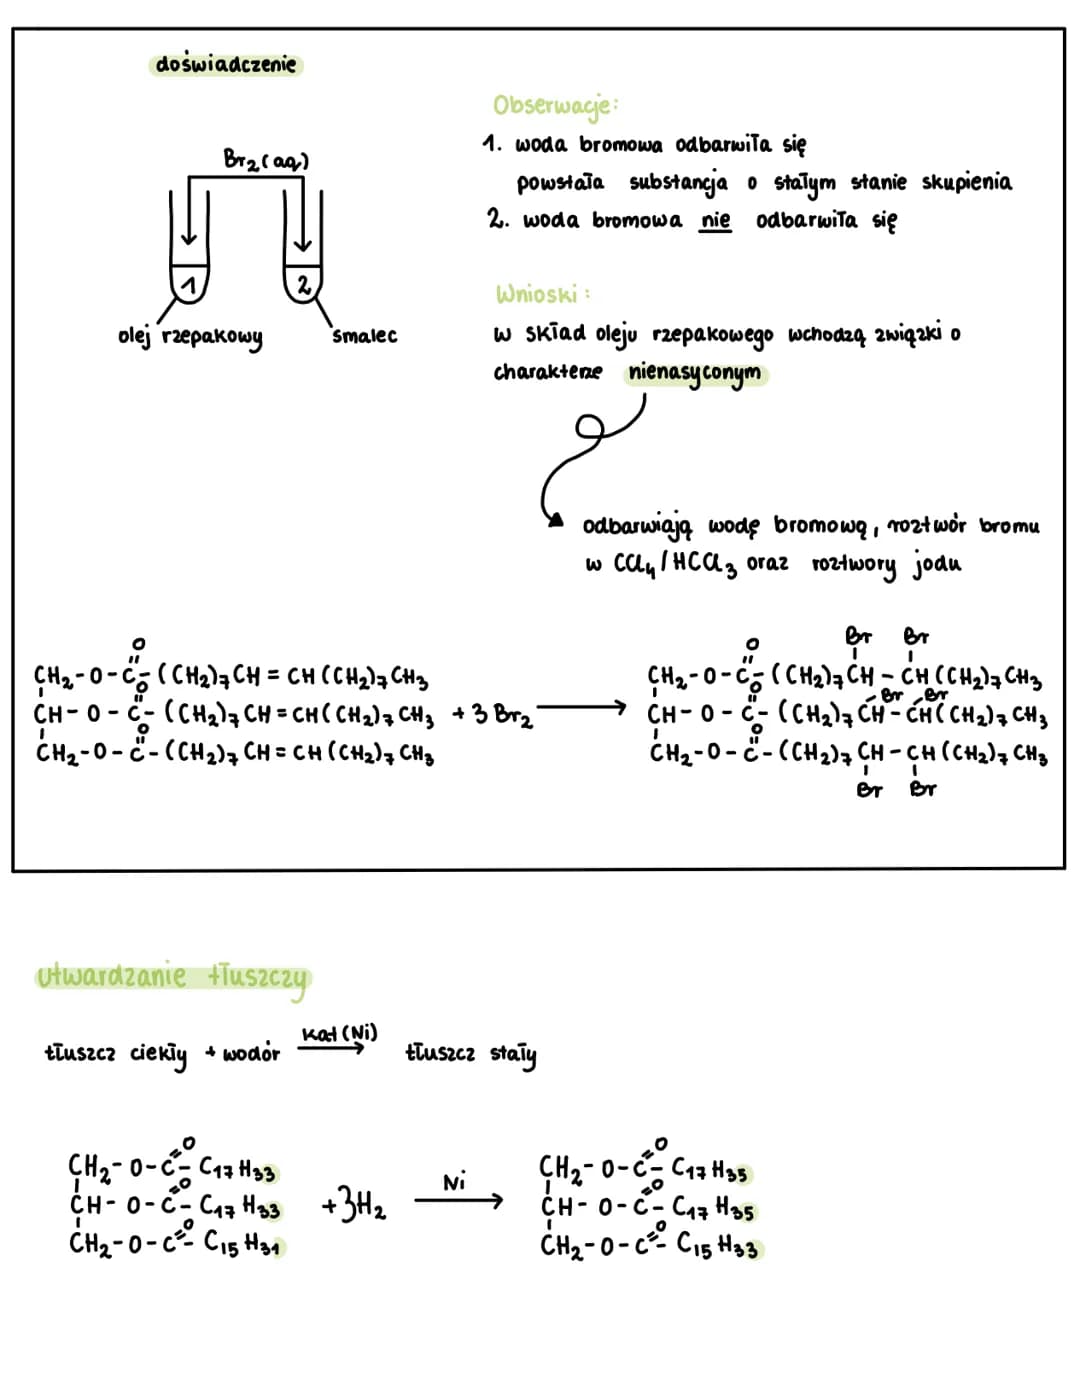 doświadczenie
Br₂(aq)
1
2
olej rzepakowy
smalec
Obserwacje:
1. woda bromowa odbarwiła się
powstała substancja o stałym stanie skupienia
2. woda bromowa nie odbarwiła się
Wnioski:
w skład oleju rzepakowego wchodzą związki o
charakterze nienasyconym
odbarwiają wodę bromową, roztwór bromu
w CCl₄/HCCl₃ oraz roztwory jodu
O
CH₂-O-C-((CH₂)₇CH=CH((CH₂)₇CH₃
O
CH-O-C-((CH₂)₇CH=CH(CH₂)₇CH₃ +3Br₂ →
O
CH₂-O-C-((CH₂)₇CH=CH(CH₂)₇CH₃
O Br Br
CH₂-O-C-((CH₂)₇CH-CH(CH₂)₇CH₃
O Br Br
CH-O-C-((CH₂)₇CH-CH(CH₂)₇CH₃
O
CH₂-O-C-((CH₂)₇CH-CH(CH₂)₇CH₃
Br Br
utwardzanie tłuszczy
tłuszcz ciekły + wodór kat(Ni) → tłuszcz stały
O
CH₂-O-C-C₁₇H₃₃
O
CH-O-C-C₁₇H₃₃ +3H₂ Ni →
O
CH₂-O-C-C₁₅H₃₁
O
CH₂-O-C-C₁₇H₃₅
O
CH-O-C-C₁₇H₃₅
O
CH₂-O-C-C₁₅H₃₃